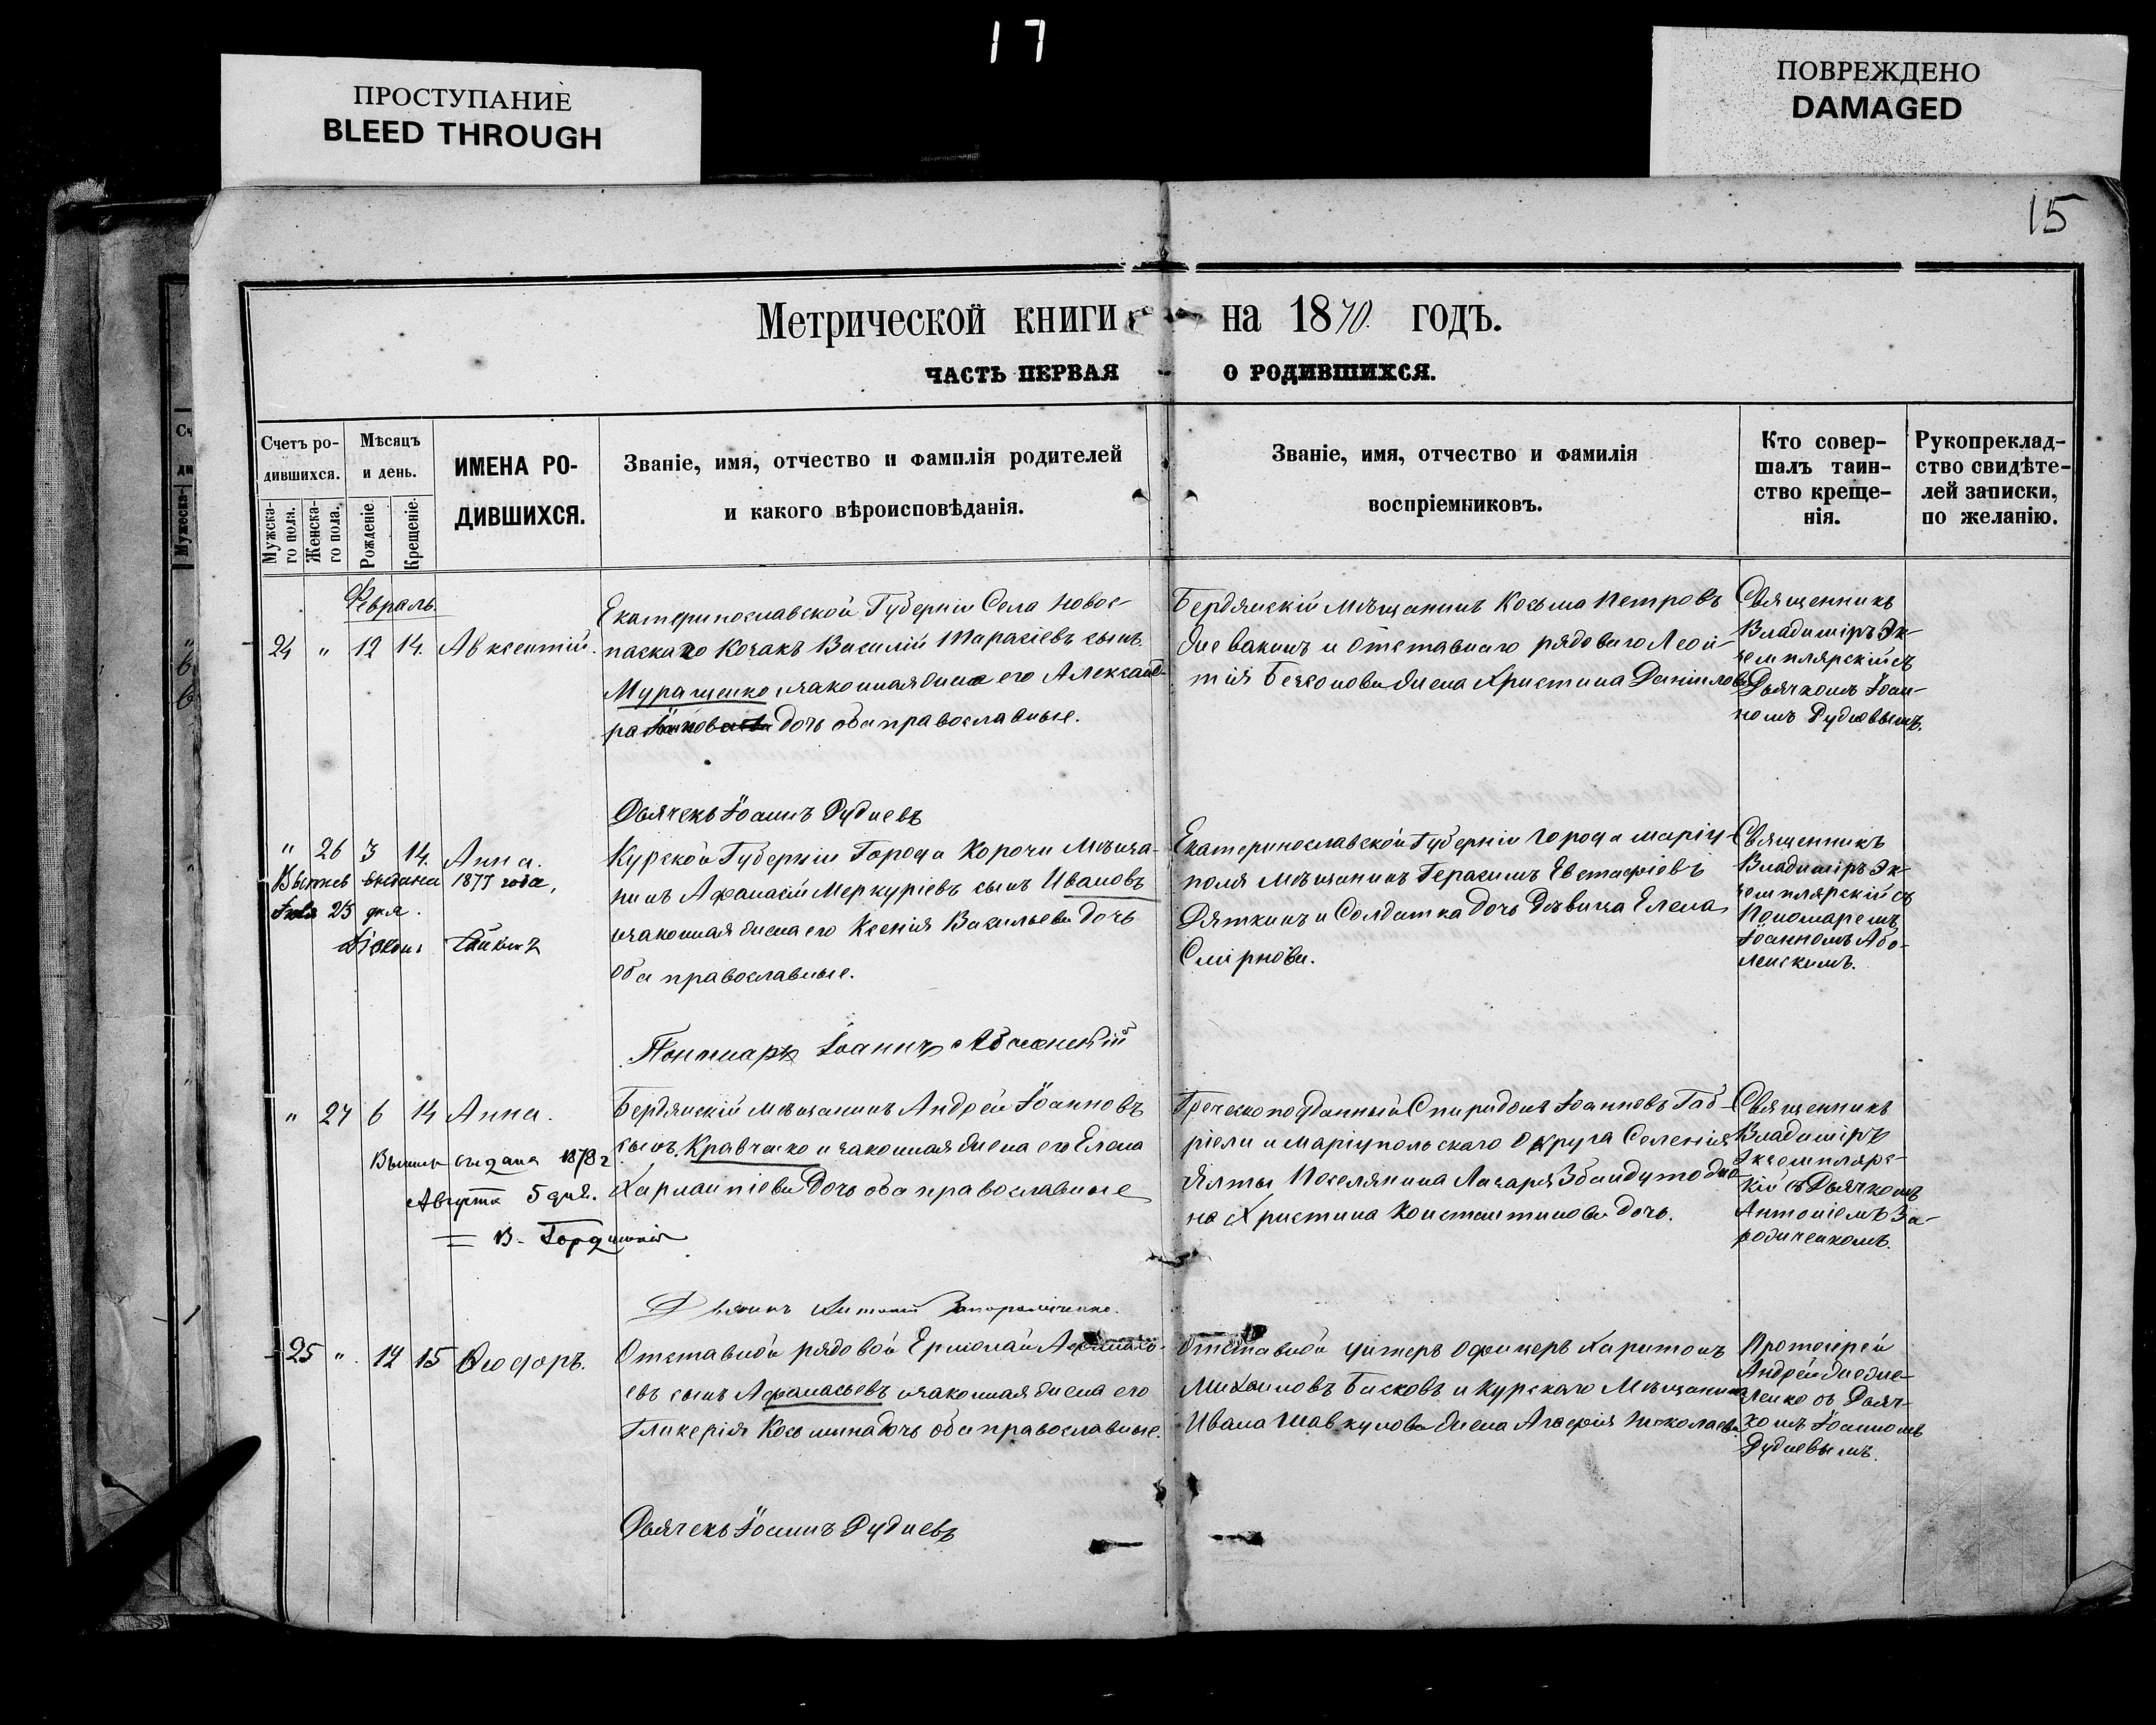 17
ПРОСТУПАНИЕ
BLEED THROUGH
ПОВРЕЖДЕНО
DAMAGED
15
Метрической книги на 1870. годъ.
ЧАСТЬ ПЕРВАЯ О РОДИВШИХСЯ.
Счетъ ро-
дившихся.
Мужска-
го пола.
Женска-
го пола.
Мѣсяцъ
и день.
Рожденіе.
Крещеніе.
ИМЕНА РО-
ДИВШИХСЯ.
Званіе, имя, отчество и фамилія родителей
и какого вѣроисповѣданія.
Званіе, имя, отчество и фамилія
воспріемниковъ.
Кто совер-
шалъ таин-
ство креще-
нія.
Рукопреклад-
ство свидѣте-
лей записки,
по желанію.
Февраль.
24 " 12 14. Авксентій.
Екатеринославской Губерніи Села Новос-
паскаго Козакъ Василій Тарасіевъ сынъ
Муращенко и законная жена его Александ-
ра дочь оба православные.
Бердянскій мѣщанинъ Косьма Петровъ
и отставнаго рядоваго Леон-
тія жена Христина Данилова
Священникъ
Владиміръ Эк-
земплярскій съ
Дьячкомъ Іоан-
номъ Рудневымъ.
Дьячекъ Іоаннъ Рудневъ
" 26 3 14. Анна.
выдана 1877 года,
25 дня.
Курской Губерніи Города Корочи Мѣща-
нинъ Афанасій Меркуріевъ сынъ Ивановъ
и законная жена его Ксенія Васильева дочь
оба православные.
Екатеринославской Губерніи города Маріу-
поля мѣщанинъ Герасимъ Евстафіевъ
Дяткинъ и Солдатка дочь Дѣвица Елена
Смирнова.
Священникъ
Владиміръ Эк-
земплярскій съ
Пономаремъ
Іоанномъ Або-
ленскимъ.
Пономарь Іоаннъ Аболенскій
" 27 6 14 Анна.
выдана 1878 г
Августа 5 дня.
В.
Бердянскій мѣщанинъ Андрей Іоанновъ
сынъ Кравченко и законная жена его Елена
Харлампіева дочь оба православные
Греческоподданный Спиридонъ Іоанновъ Габ-
ріели и Маріупольскаго Округа Селенія
Ялты Поселянина Лазаря жена
Христина Константинова дочь.
Священникъ
Владиміръ
Экземпляр-
кій съ Дьячкомъ
Антоніемъ За-
родиченкомъ.
25 " 12 15 Ѳеодоръ.
Отставной рядовой Ермолай Афанась-
евъ сынъ Афанасьевъ и законная жена его
Гликерія Косьмина дочь оба православные.
Отставной унтеръ Офицеръ Харитонъ
Михаиловъ Басковъ и Курскаго Мѣщанина
Ивана Шавкунова жена Агафія Николаева
Протоіерей
Андрей
съ Дьяч-
комъ Іоанномъ
Рудневымъ.
Дьячекъ Іоаннъ Рудневъ